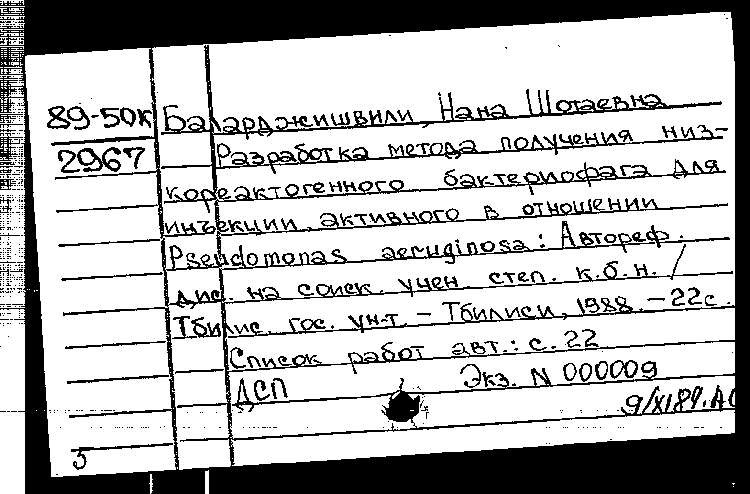 89-50к Баларджишвили, Нана Шотаевна
2967 Разработка метода получения низ-
кореактогенного бактериофага для
инъекции, активного в отношении
Pseudomonas aeruginosa: Автореф.
дис. на соиск. учен. степ. к.б.н. /
Тбилис. гос. ун-т. – Тбилиси, 1988. – 22с.
Список работ авт.: с. 22
ДСП Экз. N 000009
9/XI89.
5